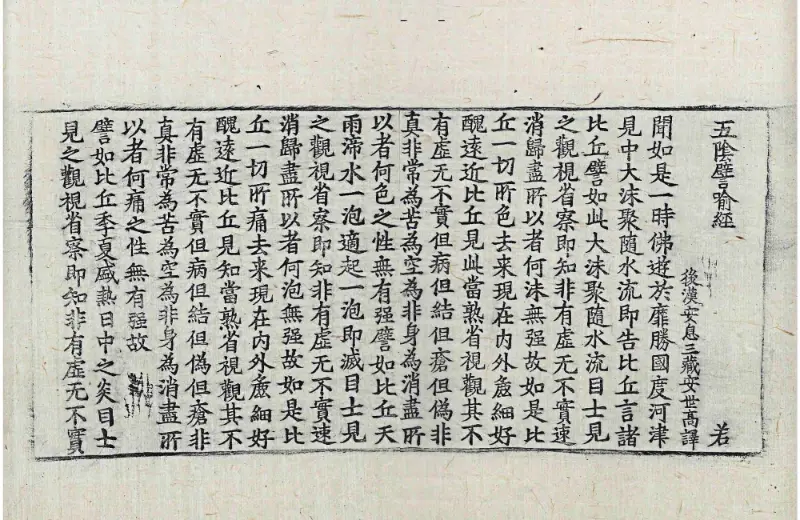 五陰譬喻經　若
後漢安息三藏安世高譯
聞如是一時佛遊於靡勝國度河津
見中大沫聚隨水流即告比丘言諸
比丘譬如此大沫聚隨水流目士見
之觀視省察即知非有虛无不實速
消歸盡所以者何沫無强故如是比
丘一切所色去来現在内外麁細好
醜遠近比丘見此當熟省視觀其不
有虛无不實但病但結但瘡但偽非
真非常為苦為空為非身為消盡所
以者何色之性無有强譬如比丘天
雨渧水一泡適起一泡即滅目士見
之觀視省察即知非有虛无不實速
消歸盡所以者何泡無强故如是比
丘一切所痛去来現在内外麁細好
醜遠近比丘見知當熟省視觀其不
有虛无不實但病但結但偽但瘡非
真非常為苦為空為非身為消盡所
以者何痛之性無有强故
譬如比丘季夏盛熱日中之炎目士
見之觀視省察即知非有虛无不實